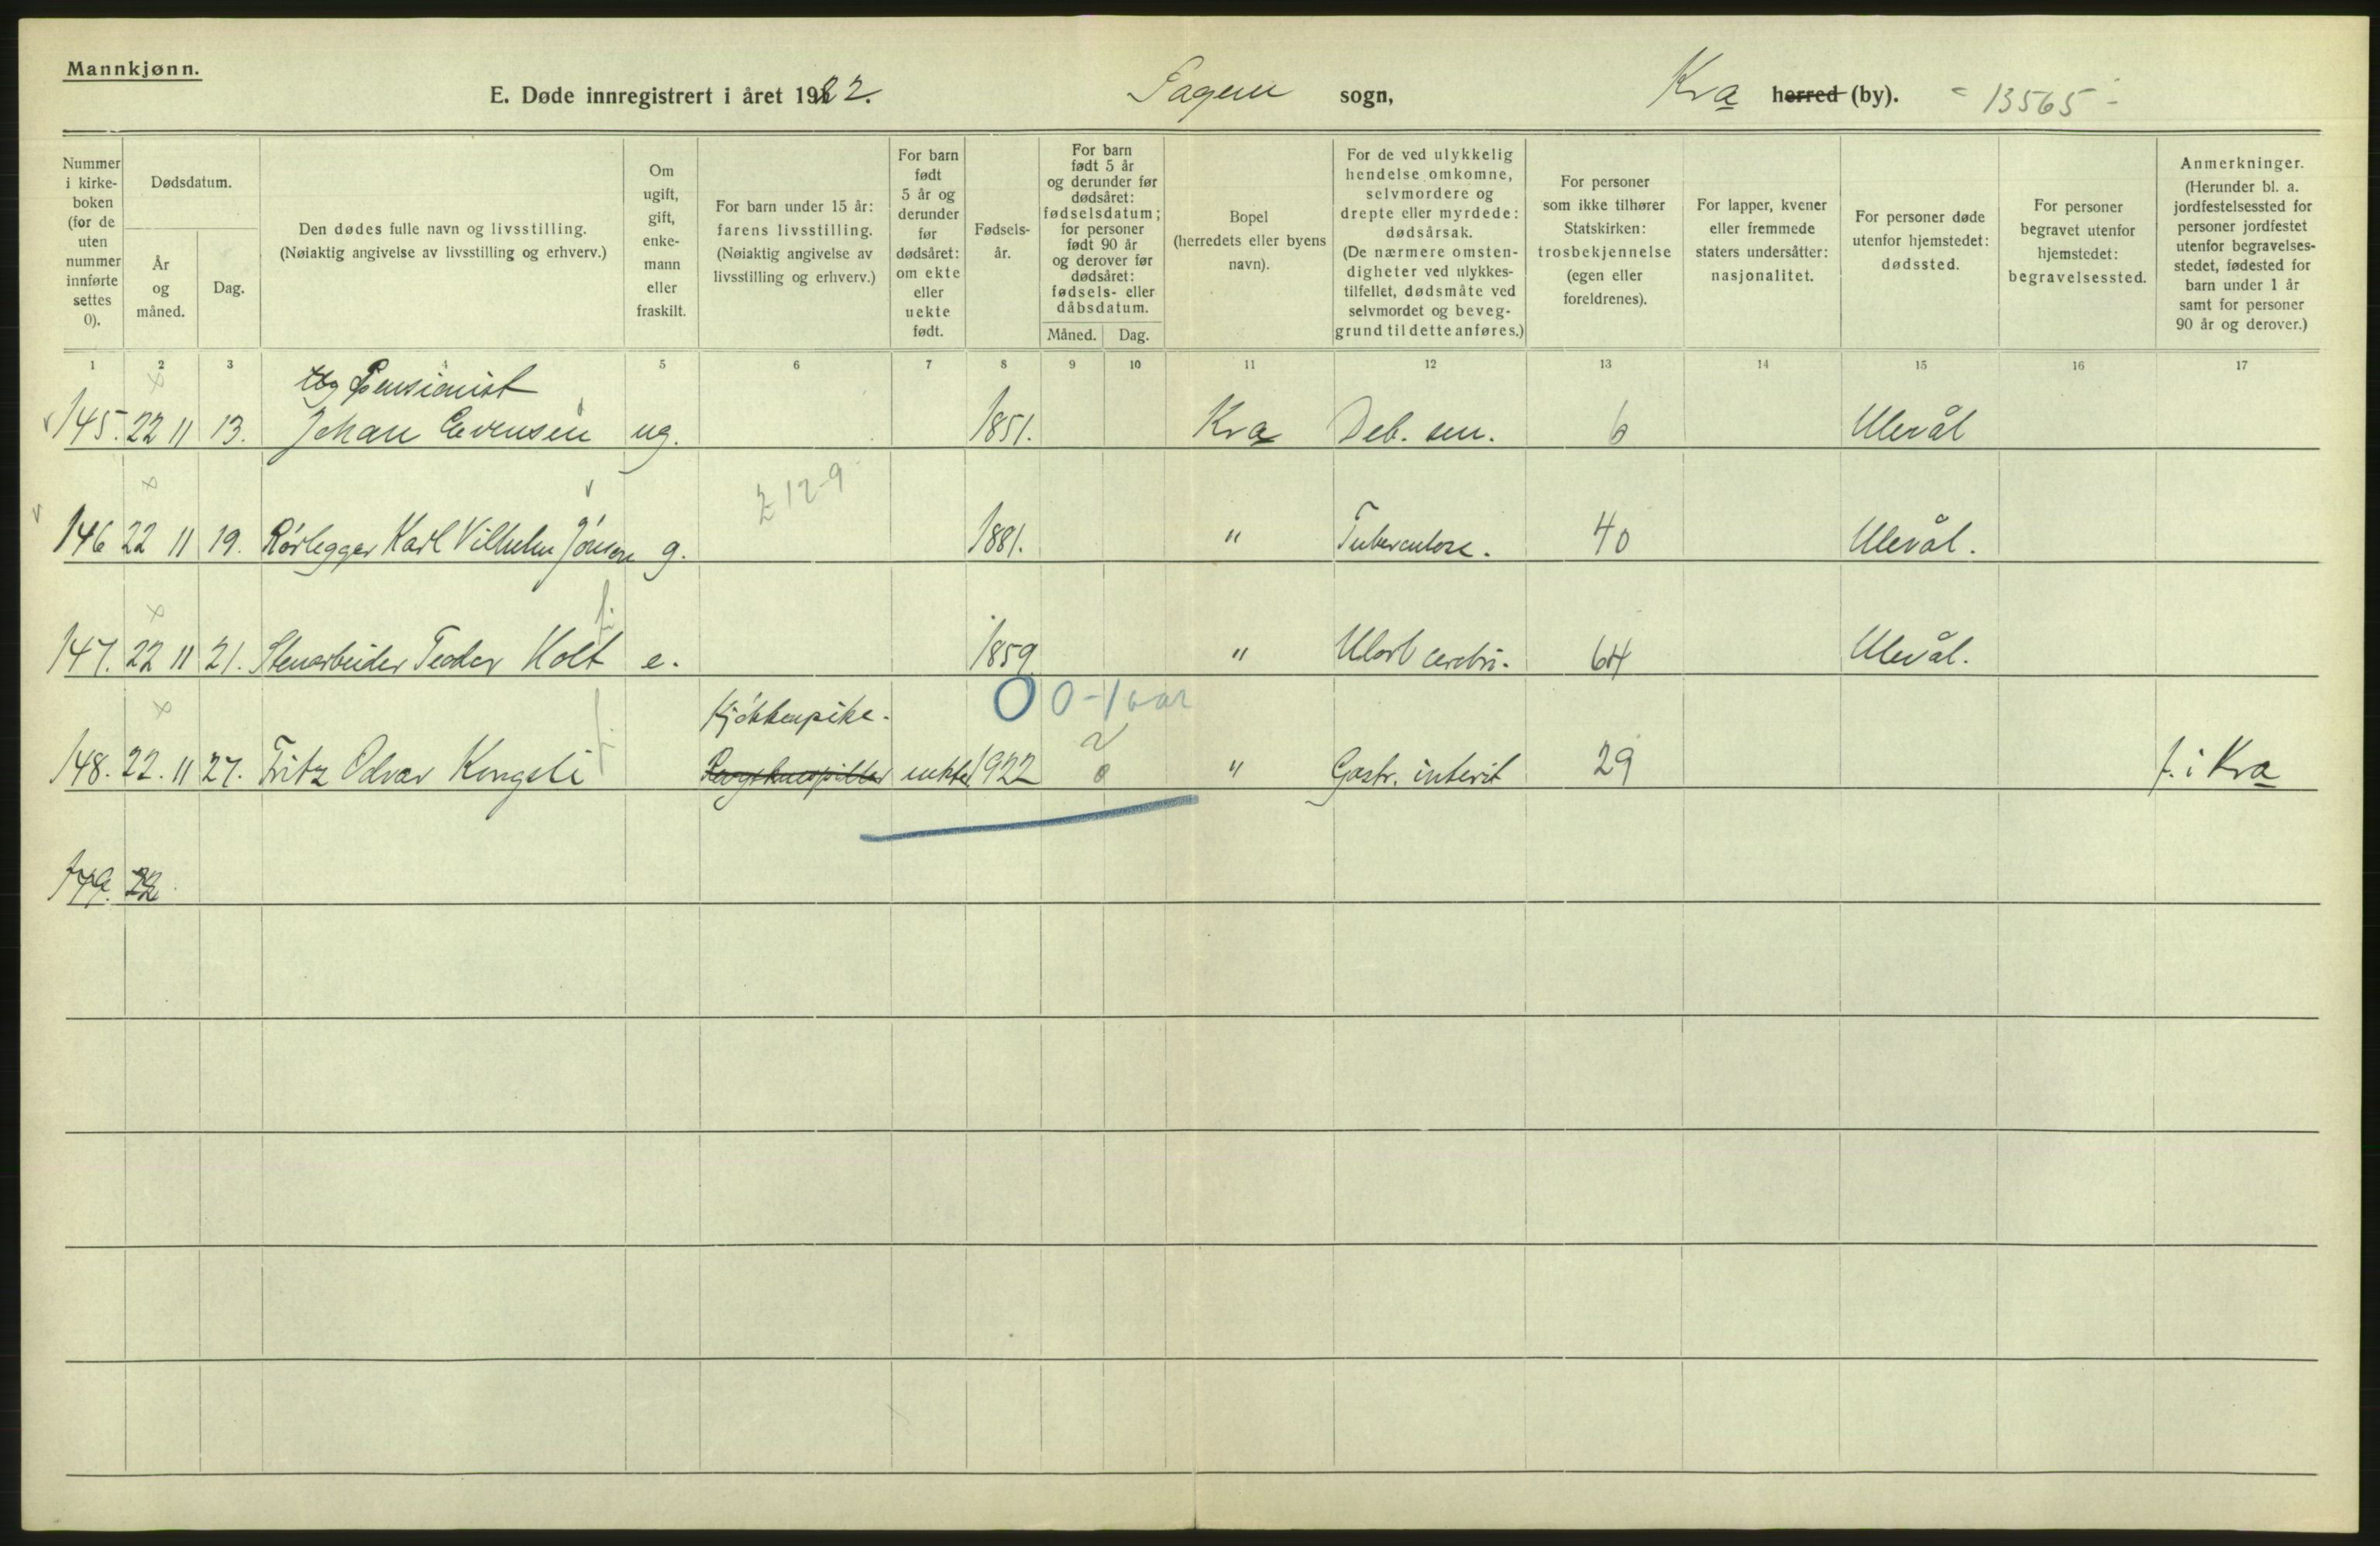 Mannkjønn.
E. Døde innregistrert i året 1922. Sagene sogn, Kra herred (by). - 13565 -
Nummer i kirke-boken (for de uten nummer innførte settes 0).
Dødsdatum.
År og måned.
Dag.
Den dødes fulle navn og livsstilling.
(Nøiaktig angivelse av livsstilling og erhverv.)
Om ugift, gift, enke-mann eller fraskilt.
For barn under 15 år: farens livsstilling.
(Nøiaktig angivelse av livsstilling og erhverv.)
For barn født 5 år og derunder før dødsåret: om ekte eller uekte født.
Fødsels-år.
For barn født 5 år og derunder før dødsåret: fødselsdatum; for personer født 90 år og derover før dødsåret: fødsels- eller dåbsdatum.
Måned. Dag.
Bopel (herredets eller byens navn).
For de ved ulykkelig hendelse omkomne, selvmordere og drepte eller myrdede: dødsårsak.
(De nærmere omsten-digheter ved ulykkes-tilfellet, dødsmåte ved selvmordet og beveg-grund til dette anføres.)
For personer som ikke tilhører Statskirken: trosbekjennelse (egen eller foreldrenes).
For lapper, kvener eller fremmede staters undersåtter: nasjonalitet.
For personer døde utenfor hjemstedet: dødssted.
For personer begravet utenfor hjemstedet: begravelsessted.
Anmerkninger.
(Herunder bl. a. jordfestelsessted for personer jordfestet utenfor begravelses-stedet, fødested for barn under 1 år samt for personer 90 år og derover.)
1 2 3 4 5 6 7 8 9 10 11 12 13 14 15 16 17
Ug Pensionist
145. 22 11 13. Johan Evensen ug. 1851. Kra Deb. sen. 6 Ulevål
12-9
146 22 11 19. Rørlegger Karl Vilhelm Jonson g. 1881. " Tuberculose. 40 Ulevål.
147. 22 11 21. Stenarbeider Teodor Holt e. 1859 " cerebri. 64 Ulevål.
Kjøkkenpike. 0 0-1 aar
148. 22. 11 27. Fritz Odvar Kongsli uekte 1922 " Gastr. interit 29 f. i Kra
149. 22.